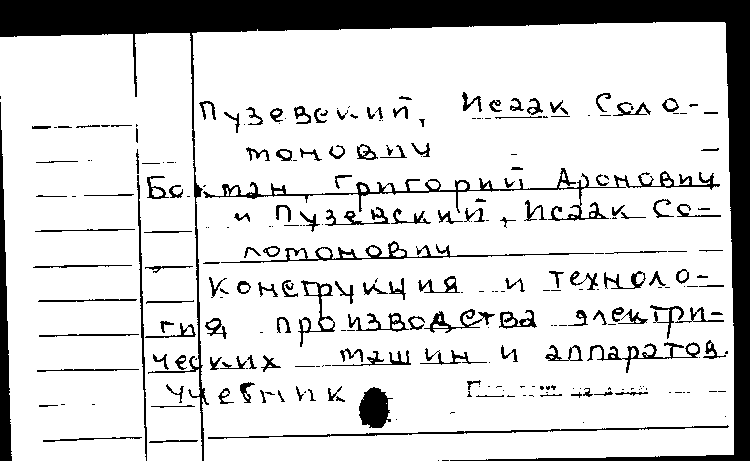 Пузевский, Исаак Соло-
монович
Бокман, Григорий Аронович
и Пузевский, Исаак Со-
ломонович
Конструкция и техноло-
гия производства электри-
ческих машин и аппаратов.
Учебник